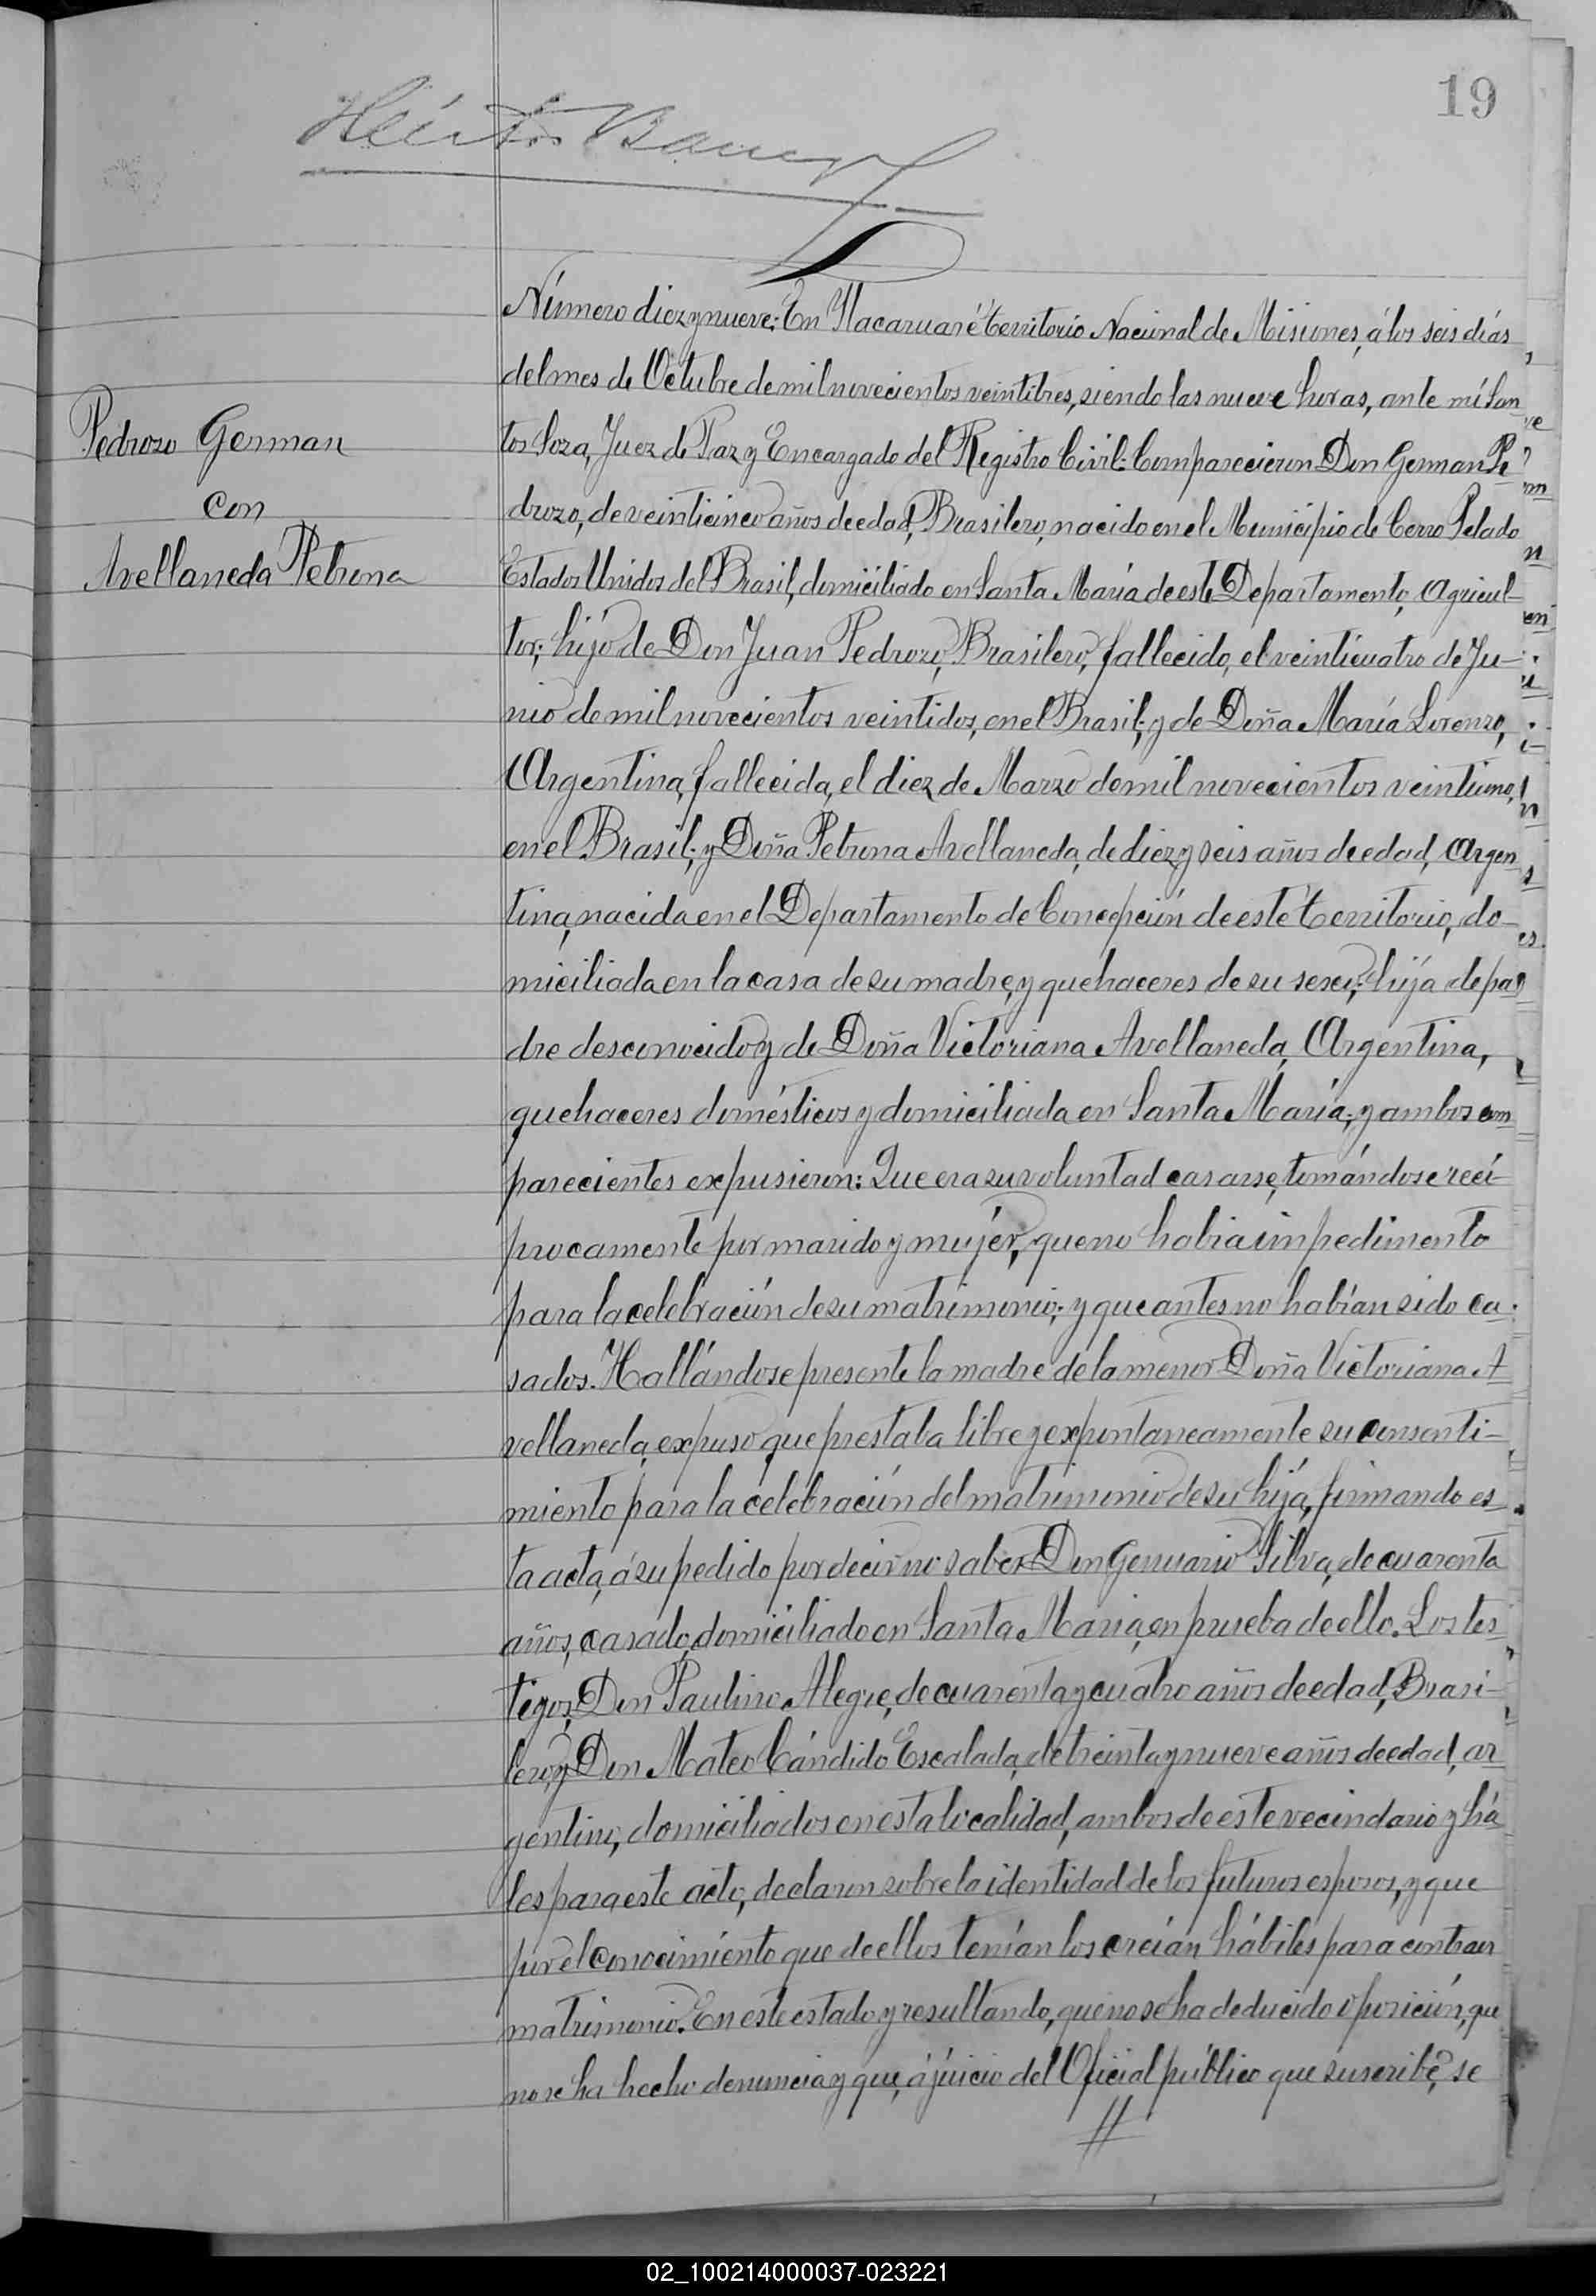 19
Número diez y nueve: En Itacaruaré territorio Nacional de Misiones, á los seis días
del mes de Octubre de mil novecientos veintitres, siendo las nueve horas, ante mí San
tos Soza, Juez de Paz y Encargado del Registro Civil: Comparecieron Don German Pe
drozo, de veinticinco años de edad, Brasilero, nacido en el Municipio de Cerro Pelado
Estados Unidos del Brasil, domiciliado en Santa María de este Departamento, Agricul-
tor; hijo de Don Juan Pedrozo, Brasilero, fallecido, el veinticuatro de Ju-
nio de mil novecientos veintidos, en el Brasil; y de Doña María Lorenzo,
Argentina, fallecida, el diez de Marzo de mil novecientos veintiuno,
en el Brasil; y Doña Petrona Avellaneda, de diez y seis años de edad, Argen
tina, nacida en el Departamento de Concepción de este territorio, do-
miciliada en la casa de su madre, y quehaceres de su sexo; hija de pa
dre desconocido y de Doña Victoriana Avellaneda, Argentina,
quehaceres domésticos y domiciliada en Santa María; y ambos com
parecientes expusieron: Que era su voluntad casarse, tomándose recí-
procamente por marido y mujér, que no habia impedimento
para la celebración de su matrimonio; y que antes no habían sido ca-
sados. Hallándose presente la madre de la menor Doña Victoriana A
vellaneda, expuso que prestaba libre y expontaneamente su consenti-
miento para la celebración del matrimonio de su hija, firmando es
ta acta, á su pedido por decir no saber Don Genuario Silva, de cuarenta
años, casado, domiciliado en Santa Maria, en prueba de ello. Los tes
tigos, Don Paulino Alegre, de cuarenta y cuatro años de edad, Brasi-
lero, y Don Mateo Cándido Escalada, de treinta y nueve años de edad, ar
gentino, domiciliados en esta localidad, ambos de este vecindario y há
les para este acto, declaron sobre la identidad de los futuros esposos, y que
por el conocimiento que de ellos tenían los creían hábiles para contraer
matrimonio. En este estado y resultando, que no se ha deducido oposición, que
no se ha hecho denuncia y que, á juicio del Oficial público que suscribe, se
//
Pedrozo German
con
Avellaneda Petrona
02_100214000037-023221